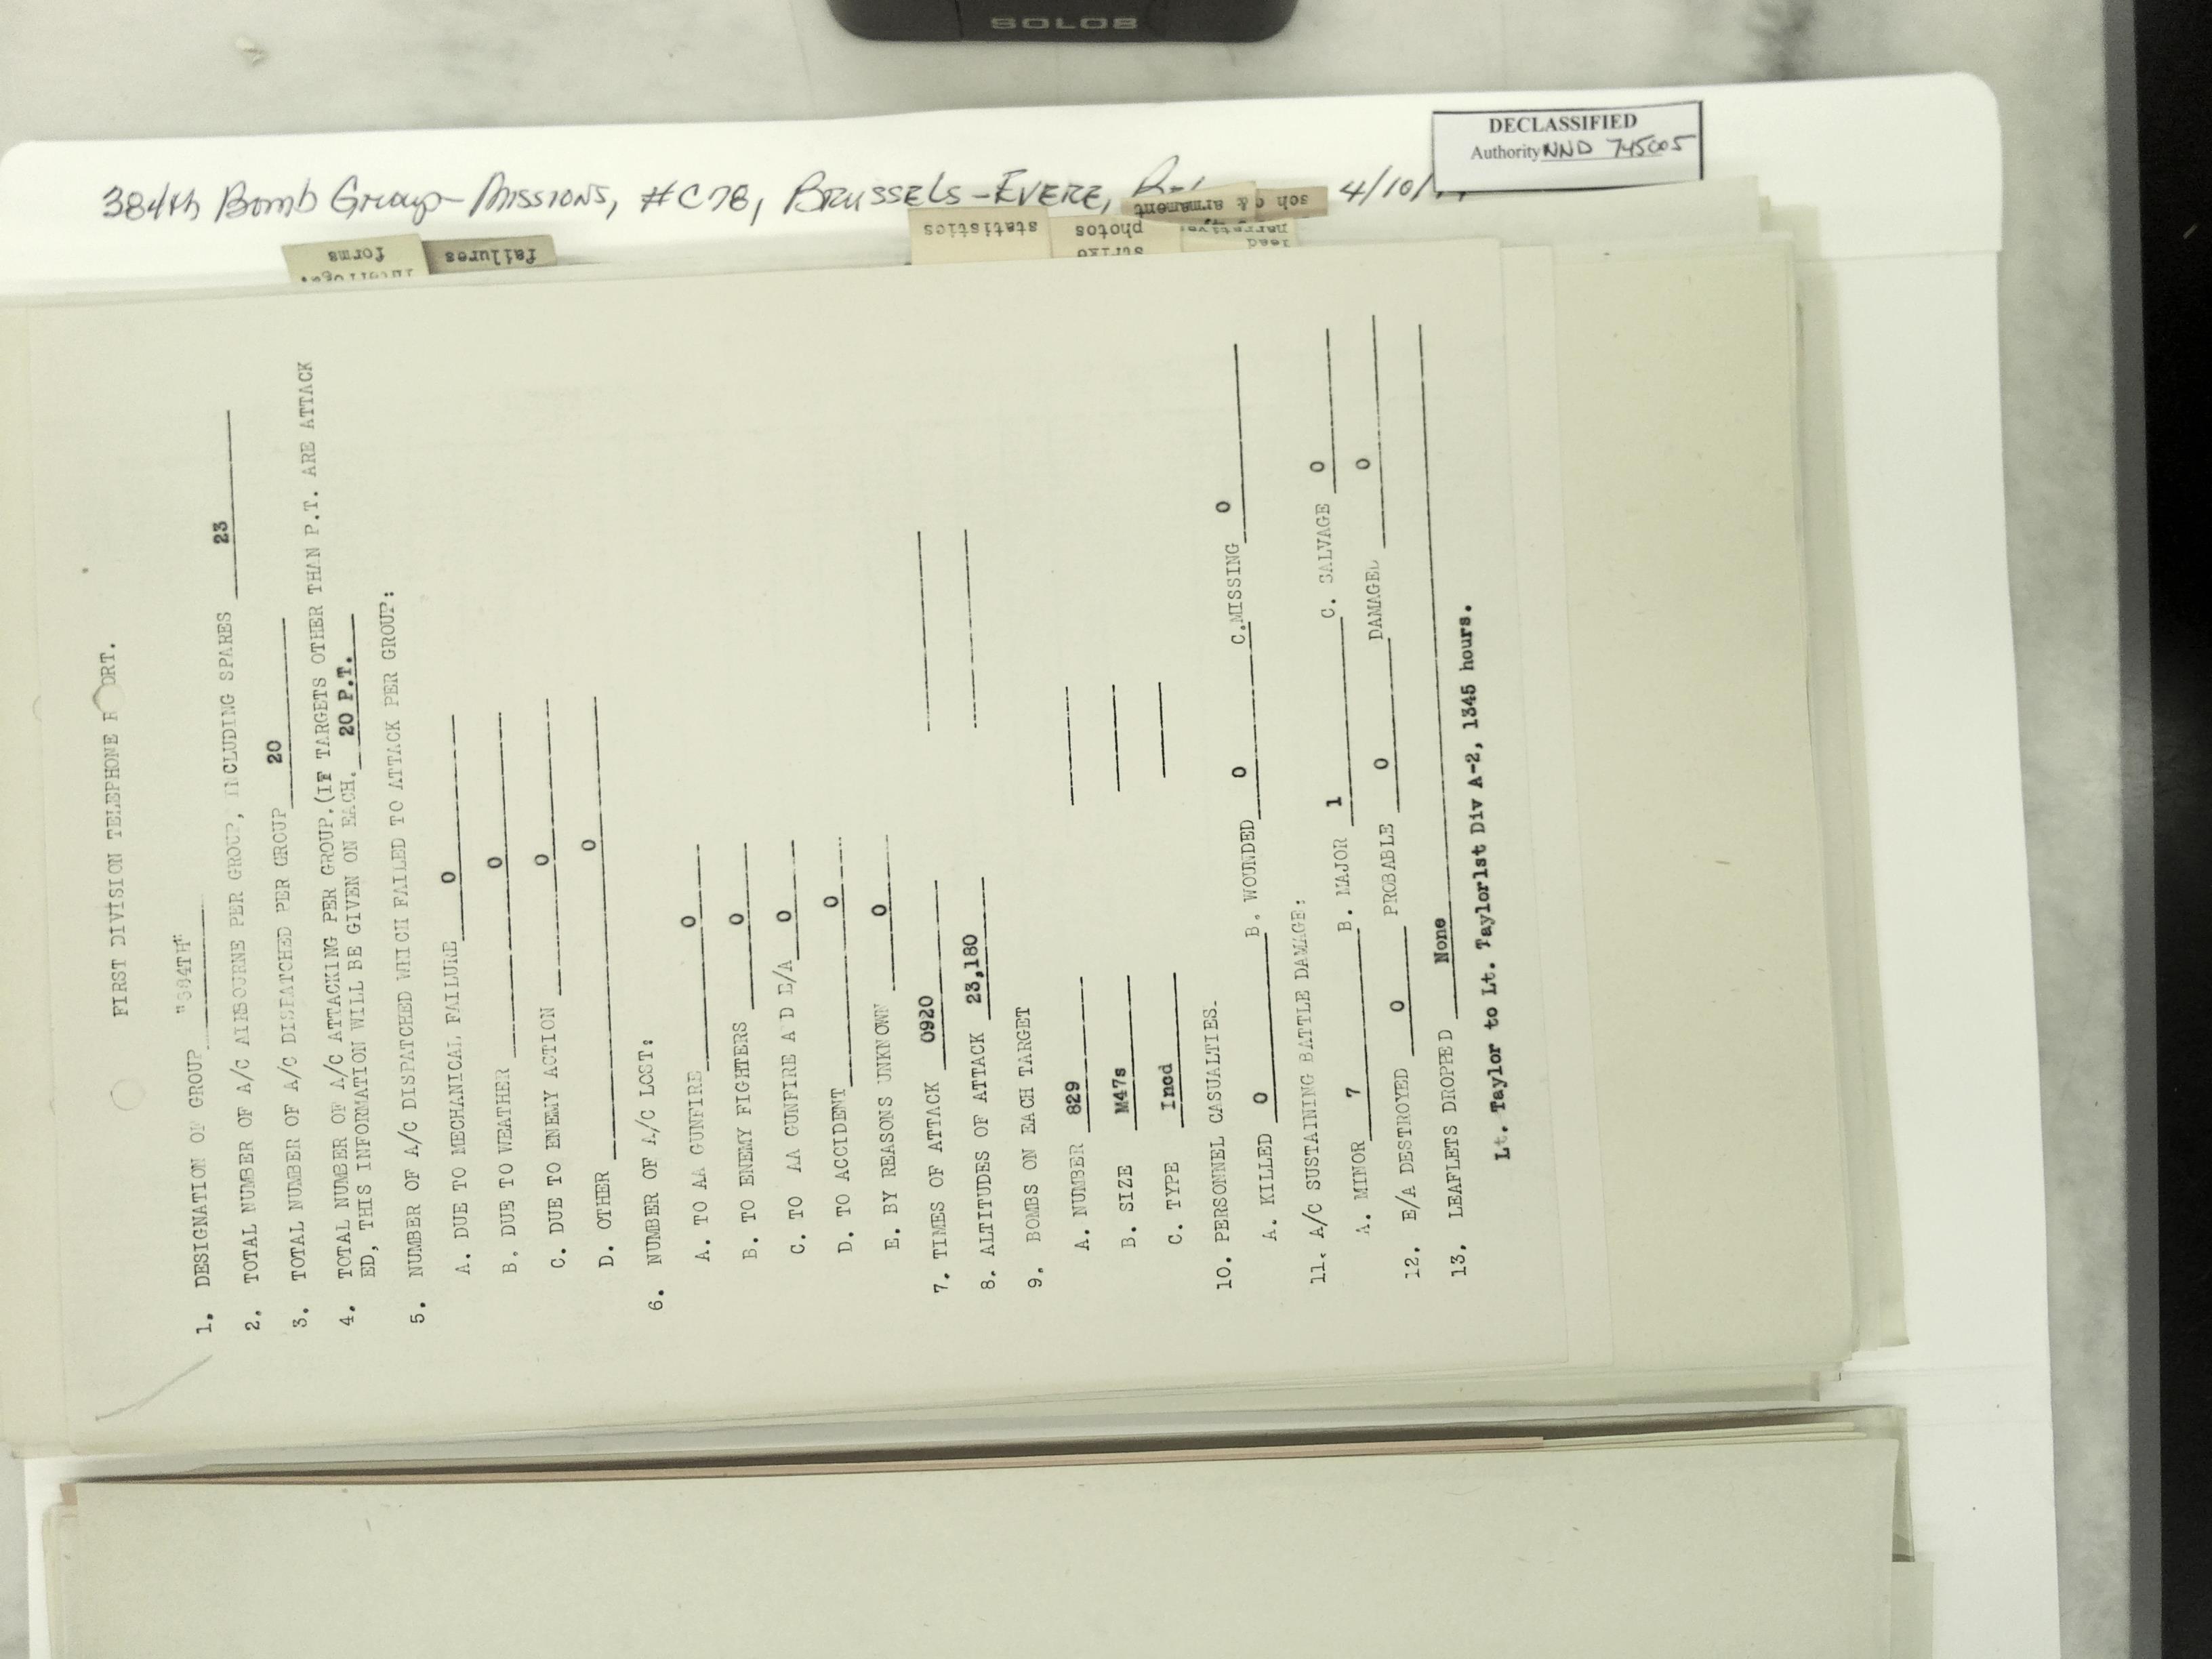 SOLO8
DECLASSIFIED
Authority NND 745005
384th Bomb Group-Missions, #C78, Brussels-Evere, 4/10/
forms
failures
statistics
strike
photos
lead
narrative
sch c & armament
FIRST DIVISION TELEPHONE R ORT.
1. DESIGNATION OF GROUP "384TH"
2. TOTAL NUMBER OF A/C AIRBOURNE PER GROUP, INCLUDING SPARES 23
3. TOTAL NUMBER OF A/C DISPATCHED PER GROUP 20
4. TOTAL NUMBER OF A/C ATTACKING PER GROUP.(IF TARGETS OTHER THAN P.T. ARE ATTACK
ED, THIS INFORMATION WILL BE GIVEN ON EACH. 20 P.T.
5. NUMBER OF A/C DISPATCHED WHICH FAILED TO ATTACK PER GROUP:
A. DUE TO MECHANICAL FAILURE 0
B. DUE TO WEATHER 0
C. DUE TO ENEMY ACTION 0
D. OTHER 0
6. NUMBER OF A/C LOST:
A. TO AA GUNFIRE 0
B. TO ENEMY FIGHTERS 0
C. TO AA GUNFIRE A D E/A 0
D. TO ACCIDENT 0
E. BY REASONS UNKNOWN 0
7. TIMES OF ATTACK 0920
8. ALTITUDES OF ATTACK 23,180
9. BOMBS ON EACH TARGET
A. NUMBER 829
B. SIZE M47s
C. TYPE Incd
10. PERSONNEL CASUALTIES.
A. KILLED 0 B. WOUNDED 0 C.MISSING 0
11. A/C SUSTAINING BATTLE DAMAGE:
A. MINOR 7 B. MAJOR 1 C. SALVAGE 0
12. E/A DESTROYED 0 PROBABLE 0 DAMAGED 0
13. LEAFLETS DROPPED None
Lt. Taylor to Lt. Taylor1st Div A-2, 1345 hours.